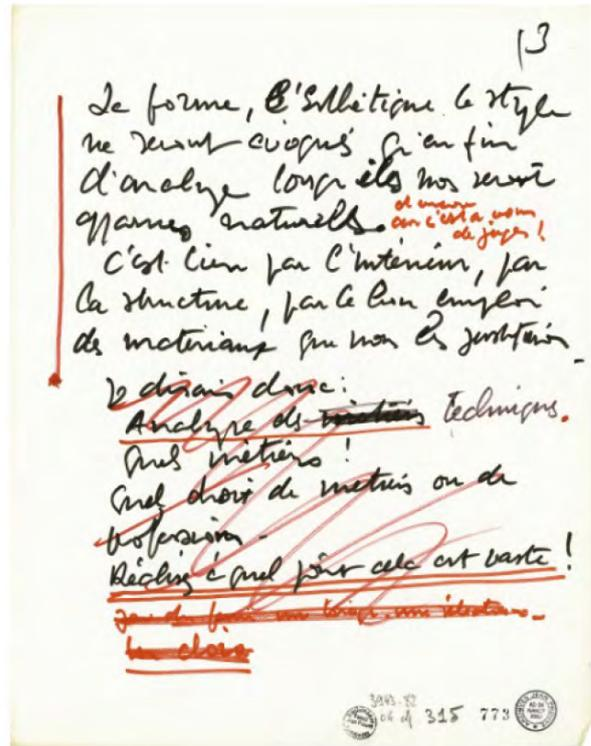 13
La forme, l'Esthétique le style
ne seront évoqués qu'en fin
d'analyse lorsqu'ils nos seront
apparus naturels.
et encore
car c'est a vous
de juger !
C'est bien par l'intérieur, par
la structure, par le bon emploi
des materiaux que nous les justifierons
Je disais donc :
Analyse des métiers techniques.
quels métiers !
quel choix de métiers ou de
professions -
Réalisez à quel point cela est vaste !
j'ai du faire un
un choix
3943-82
04 dj 315 773